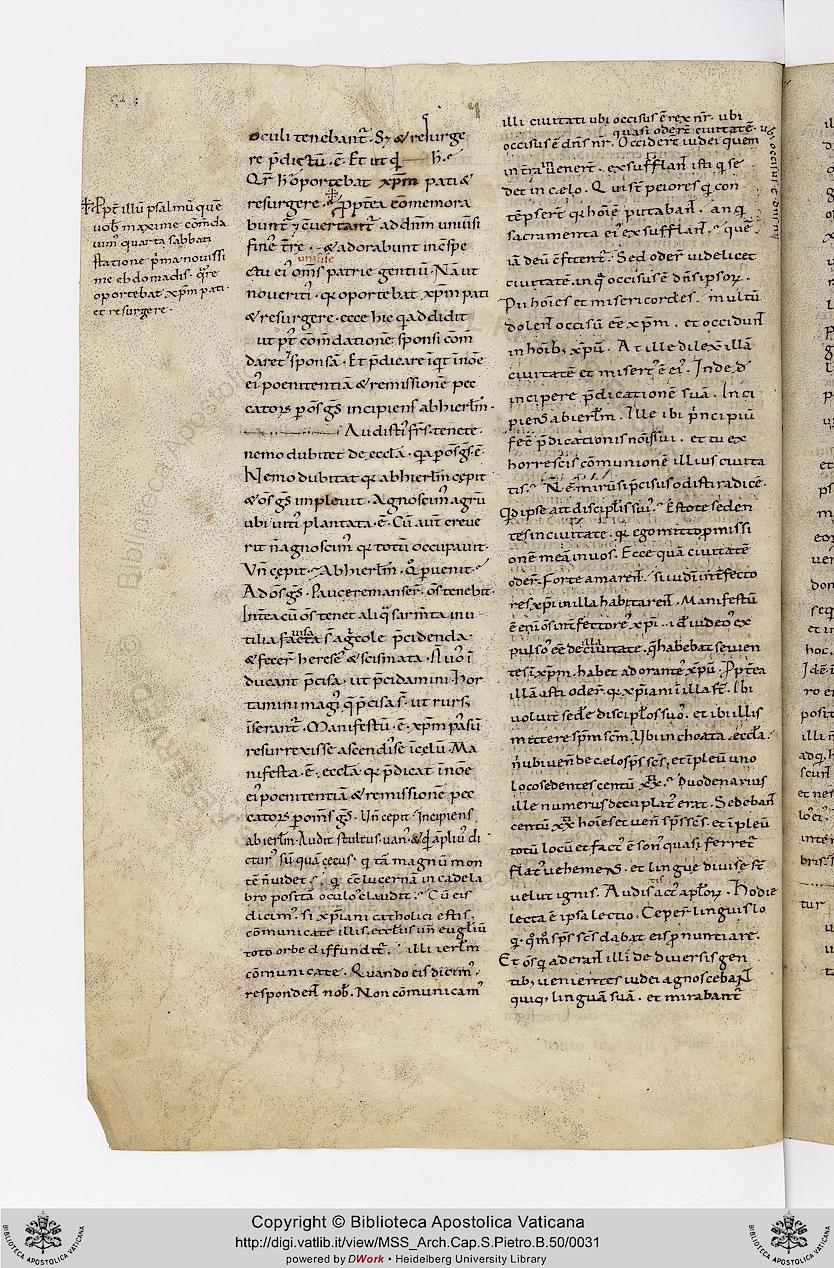 oculi tenebant̄. Sy & resurge
re p̄dictū. ē. Et ut
Qr̄ h̄ oportebat xp̄m pati &
resurgere. p̄p̄tea cōmemora
bunt & c̄uertant̄ ad dn̄m uniūsi
fines t̄re. & adorabunt in c̄spe
uniūsę
ctu ei' om̄s patrie gentiū. Nā ut
noueriti' qr oportebat xp̄m pati
& resurgere. ecce hic qđ addidit
ut p̄t cōm̄datione sponsi cōm̄
daret' sponsā. Et p̄dicare i eiq̄t inōe
ei' poenitentiā & remissione pec
catorꝝ p os̄ gs̄ incipiens ab hierlm̄.
Audisti' fr̄s. tenete.
nemo dubitet de ecclā. qa p os̄ gs̄. ē.
Nemo dubitat qr ab hierlm̄ cępit
& os̄ gs̄ impleuit. Agnoscim' agrū
ubi uiti' plantata. ē. Cū aut̄ creue
rit n̄ agnoscim' qr totū occupauit.
Vn̄ cępit. Ab hierlm̄. Q̊ puenit.
Ad os̄ gs̄. Pauce remanser̄. os̄ tenebit.
Int̄ea cū os̄ tenet aliq̄ sarm̄ta inu
uisa
tilia facta s̄ agcole p̄cidenda.
& fecer̄ hereses & scismata. N uo' ī
ducant p̄cisa. ut p̄cidamini. Hor
tamini magi' q̄ p̄cisa s̄. ut rurs'
iserant̄. Manifestū. ē. xp̄m pasū
resurrexisse ascendisse ī celū. Ma
nifesta. ē. ecclā. qr p̄dicat inōe
ei' poenitentiā & remissione pec
catorꝝ p om̄s gs̄. Vn̄ cepit. Incipiens
ab hierlm̄. Audit stultus. uan'. & qđ ampliu' di
ctur' sū quā cecus. q tā magnū mon
te n̄ uidet. q cē lucernā in cādela
bro positā oculos claudit. Cū eis
dicim'. si xp̄iani catholici estis.
cōmunicate illis eccl̄iis un̄ eug̅liū
toto orbe diffundit̄. illi ierlm̄
cōmunicate. Quando eis dicim'.
respondent nob̄. Non cōmunicam'
✝ Ppt̄ illū psalmū quē
uob̄ maxime cōm̄da
uim' quarta sabbati
statione p̄ma nouissi
me ebdomadis. qr̄e
oportebat xp̄m pati.
et resurgere.
illi ciuitati ubi occisus ē rex nr̄. ubi
quasi oderē ciuitatē. ubi occisus ē dn̄s nr̄
occisus ē dn̄s nr̄. Occidert iudei quem
intra uenert. exsufflant isti q se
det in cęlo. Q' ui st̄ peiores q con
tēpsert qr hoīe putabant. an q
sacramenta ei' exsufflant. quē
iā deū c̄fitent̄. Sed oder̄ uidelicet
ciuitatē. in q̄ occisus ē dn̄s ipsorꝝ.
Pii hoīes et misericordes. multū
dolent occisū ee xp̄m. et occidunt
in hoīb' xp̄m. At ille dilex̄ illā
ciuitatē et misert' ē ei'. Inde đ
incipere p̄dicationē suā. Inci
piens ab ierlm̄. Ille ibi p̄ncipiū
fec̄ p̄dicationis nōīs sui. et tu ex
horrescis cōmunionē illius ciuita
tis. N̄ ē mirū si p̄cisus odisti radicē.
Qđ ipse ait disciplis suis. Estote seden
tes in ciuitate. qr ego mitto pmissi
onē meā in uos. Ecce quā ciuitatē
oder̄. Forte amarent. si iudī int̄fecto
res xp̄i in illa habitarent. Manifestū
ē enī os̄ int̄fectores xp̄i. id' iudeos ex
illa
pulsos ee de ciuitate. q̄ habebat seuien
tes ī xp̄m. habet adorantes xp̄m. P̄pt̄ea
illā isti oder̄. qr xp̄iani ī illa st̄. Ibi
uoluit sede' discip̄los suos. et ibi illis
mittere sp̄m sc̄m. Vbi inchoata eccl̄a.
n̄ ubi uen̄ de cęlo sp̄s sc̄s. et ī pleū uno
loco sedentes centū xx. Duodenarius
ille numerus decuplat' erat. Sedebant
centū xx hoīes et uen̄ sp̄s sc̄s. et ī pleū
totū locū et fact' ē son' quasi ferret̄
flat' uehemens. et lingue diuise st̄
uelut ignis. Audis act' aplorꝝ. Hodie
lecta ē ipsa lectio. Ceper̄ linguis lo
q. qm̄ sp̄s sc̄s dabat eis p̄nuntiare.
Et os̄ q aderant illī de diuersis gen
tib; uenientes iudei agnoscebant
quiq; linguā suā. et mirabant̄
Copyright © Biblioteca Apostolica Vaticana
http://digi.vatlib.it/view/MSS_Arch.Cap.S.Pietro.B.50/0031
powered by DWork • Heidelberg University Library
BIBLIOTECA APOSTOLICA VATICANA
BIBLIOTECA APOSTOLICA VATICANA